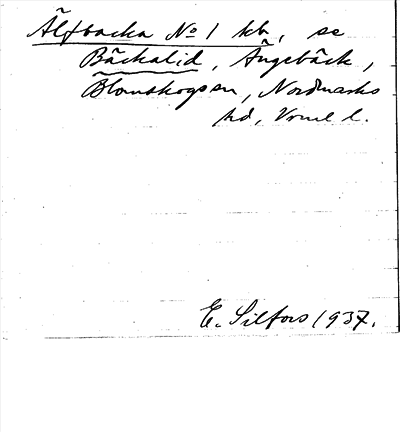 Älfbacka No 1 hb, se
Bäckalid, Ängebäck,
Blomskogs sn, Nordmarks
hd, Vrml l.
E. Silfors 1937.